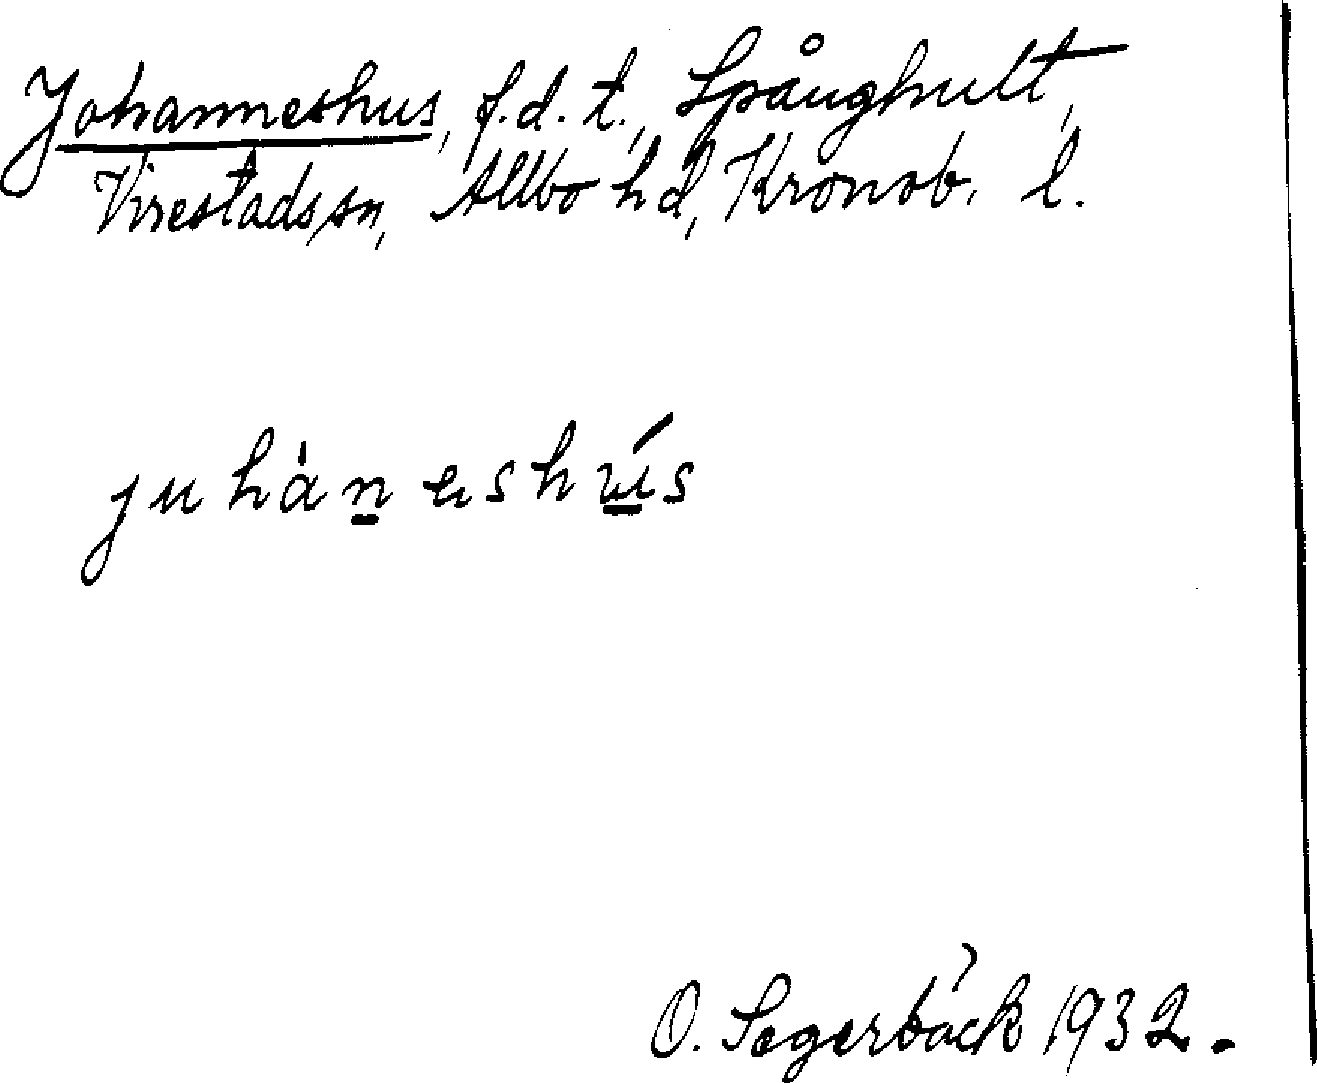 Johanneshus, f.d.t., Spånghult,
Virestads sn, Allbo hd, Kronob. l.
juhàn̲eshú̲s
O. Segerbäck 1932.